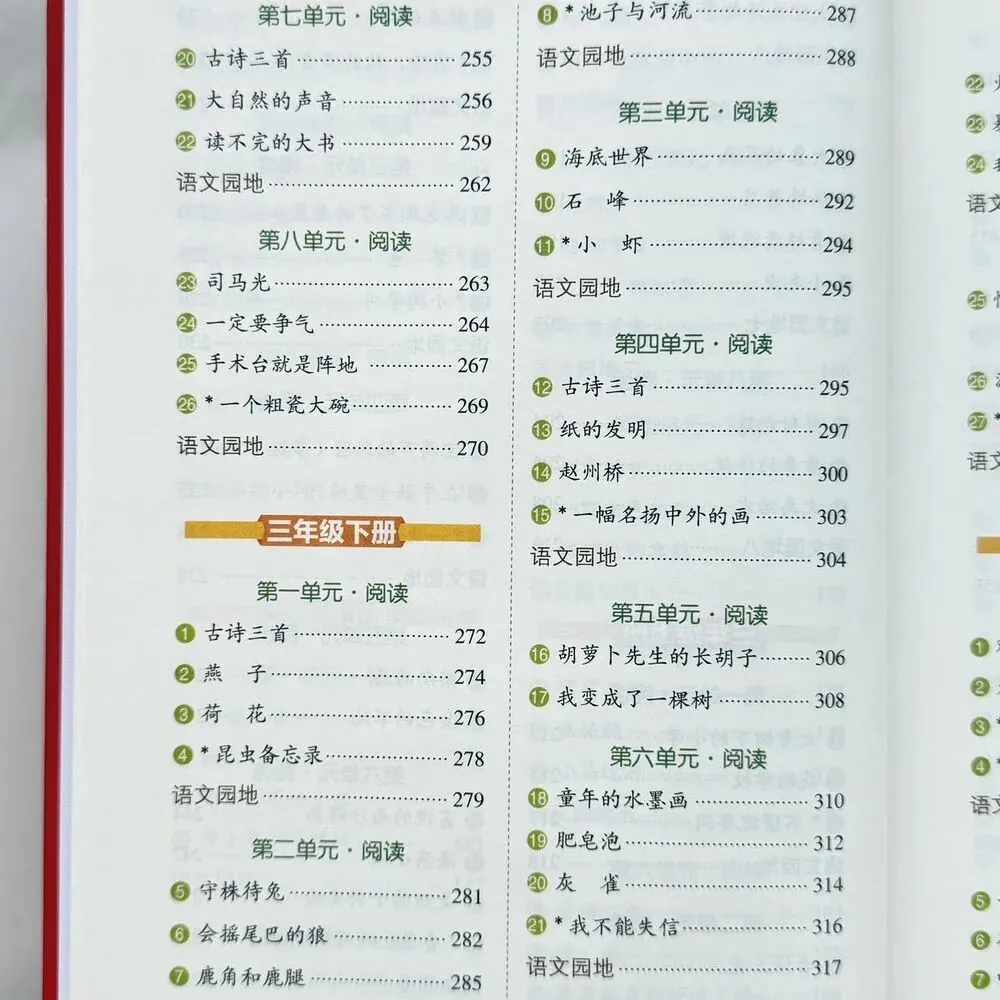 第七单元·阅读
20 古诗三首 255
21 大自然的声音 256
22 读不完的大书 259
语文园地 262
第八单元·阅读
23 司马光 263
24 一定要争气 264
25 手术台就是阵地 267
26 *一个粗瓷大碗 269
语文园地 270
三年级下册
第一单元·阅读
1 古诗三首 272
2 燕 子 274
3 荷 花 276
4 *昆虫备忘录 278
语文园地 279
第二单元·阅读
5 守株待兔 281
6 会摇尾巴的狼 282
7 鹿角和鹿腿 285
8 *池子与河流 287
语文园地 288
第三单元·阅读
9 海底世界 289
10 石 峰 292
11 *小 虾 294
语文园地 295
第四单元·阅读
12 古诗三首 295
13 纸的发明 297
14 赵州桥 300
15 *一幅名扬中外的画 303
语文园地 304
第五单元·阅读
16 胡萝卜先生的长胡子 306
17 我变成了一棵树 308
第六单元·阅读
18 童年的水墨画 310
19 肥皂泡 312
20 灰 雀 314
21 *我不能失信 316
语文园地 317
22
23
24
语文
25
26
27 *
语文
1
2
3 *
4 *
语文
5
6
7